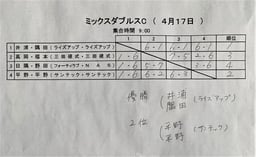 ミックスダブルスC ( 4月17日 )
集合時間 9:00
1 2 3 4 順位
1 井浦・隅田 (ライズアップ・ライズアップ) 6-1 6-1 6-1 1
2 高田・福本 (三田硬式・三田硬式) 1-6 7-5 2-6 3
3 日隅・野田 (フォーティラブ・NAS) 1-6 5-7 4
4 平野・平野 (サンテック・サンテック) 1-6 6-2 2
優勝 井浦 隅田 (ライズアップ)
2位 平野 平野 (サンテック)